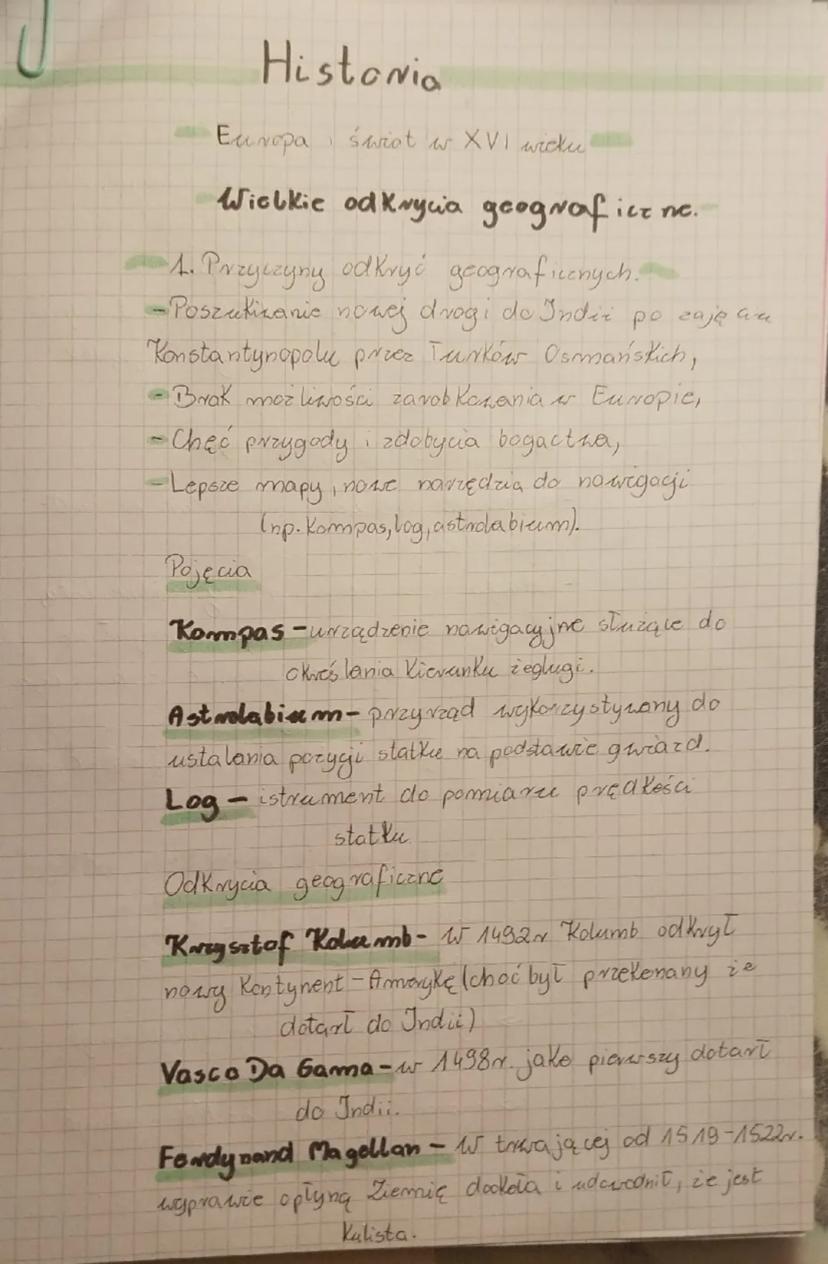 Historia
Europa i świat w XVI wieku
Wielkie odkrycia geograficzne.
1. Przyczyny odkryć geograficznych.
- Poszukiwanie nowej drogi do Indii po zajęciu
Konstantynopolu przez Turków Osmańskich,
- Brak możliwości zarobkowania w Europie,
- Chęć przygody i zdobycia bogactwa,
- Lepsze mapy, nowe narzędzia do nawigacji
(np. kompas, log, astrolabium).
Pojęcia
Kompas - urządzenie nawigacyjne służące do
określania kierunku żeglugi.
Astrolabium - przyrząd wykorzystywany do
ustalania pozycji statku na podstawie gwiazd.
Log - istrument do pomiaru prędkości
statku
Odkrycia geograficzne
Krzysztof Kolumb - W 1492r Kolumb odkrył
nowy kontynent - Amerykę (choć był przekonany że
dotarł do Indii)
Vasco Da Gama - w 1498r. jako pierwszy dotarł
do Indii.
Ferdynand Magellan - W trwającej od 1519-1522r.
wyprawie opłyną Ziemię dookoła i udowodnił, że jest
kulista.